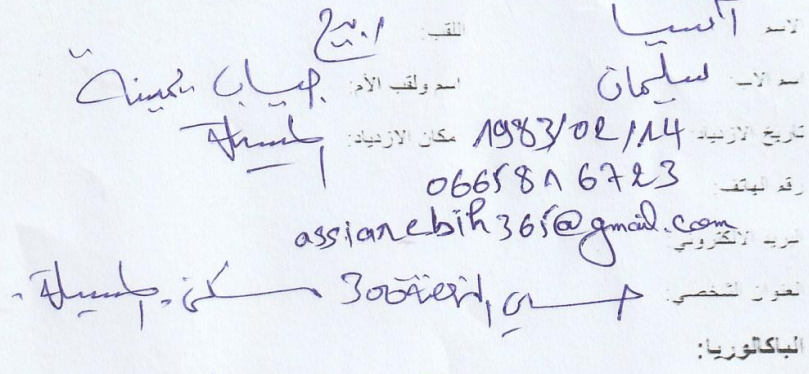 الاسم آسيا اللقب: ربيح
اسم الاب: سليمان اسم ولقب الأم: جياب يمينة
تاريخ الازدياد 1983/02/14 مكان الازدياد: المسيلة
رقم الهاتف: 0665816723
البريد الالكتروني: assiarebih365@gmail.com
العنوان الشخصي: حي 300 مسكن، المسيلة.
الباكالوريا: